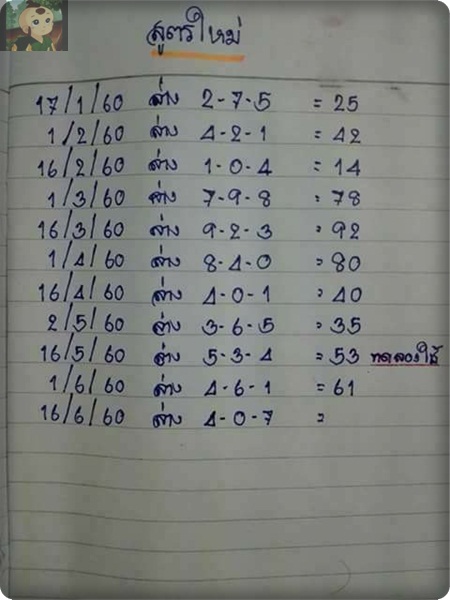 สูตรใหม่
17/1/60 ล่าง 2-7-5 = 25
1/2/60 ล่าง 4-2-1 = 42
16/2/60 ล่าง 1-0-4 = 14
1/3/60 ล่าง 7-9-8 = 78
16/3/60 ล่าง 9-2-3 = 92
1/4/60 ล่าง 8-4-0 = 80
16/4/60 ล่าง 4-0-1 = 40
2/5/60 ล่าง 3-6-5 = 35
16/5/60 ล่าง 5-3-4 = 53 ทดลองใช้
1/6/60 ล่าง 4-6-1 = 61
16/6/60 ล่าง 4-0-7 =